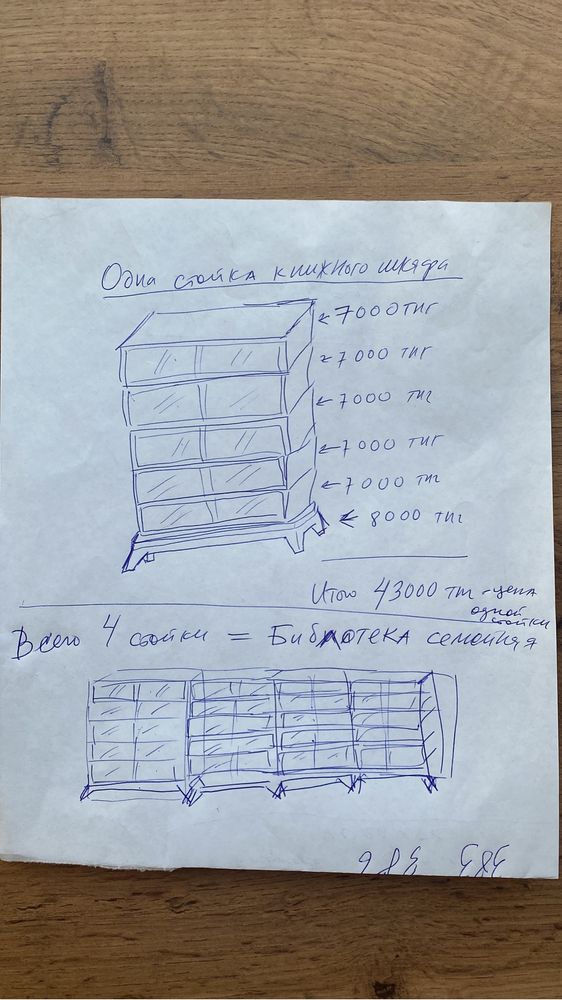 Одна стойка книжного шкафа
← 7000 тнг
← 7000 тнг
← 7000 тнг
← 7000 тнг
← 7000 тнг
← 8000 тнг
Итого 43000 тнг - цена
одной
стойки
Всего 4 стойки = Библиотека семейная